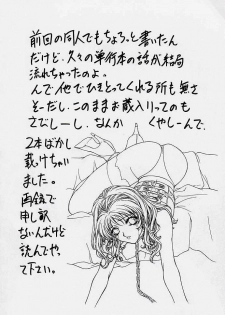 前回の同人でもちょろっと書いたん
だけど、久々の単行本の話が結局
流れちゃったのよ。
んで他でひきとってくれる所も無さ
そーだし、このままお蔵入りってのも
さびしーし、なんか くやしーんで、
2本ばかし
載っけちゃい
ました。
両錢で
申し訳
ないんだけど
読んでやっ
て下さい。